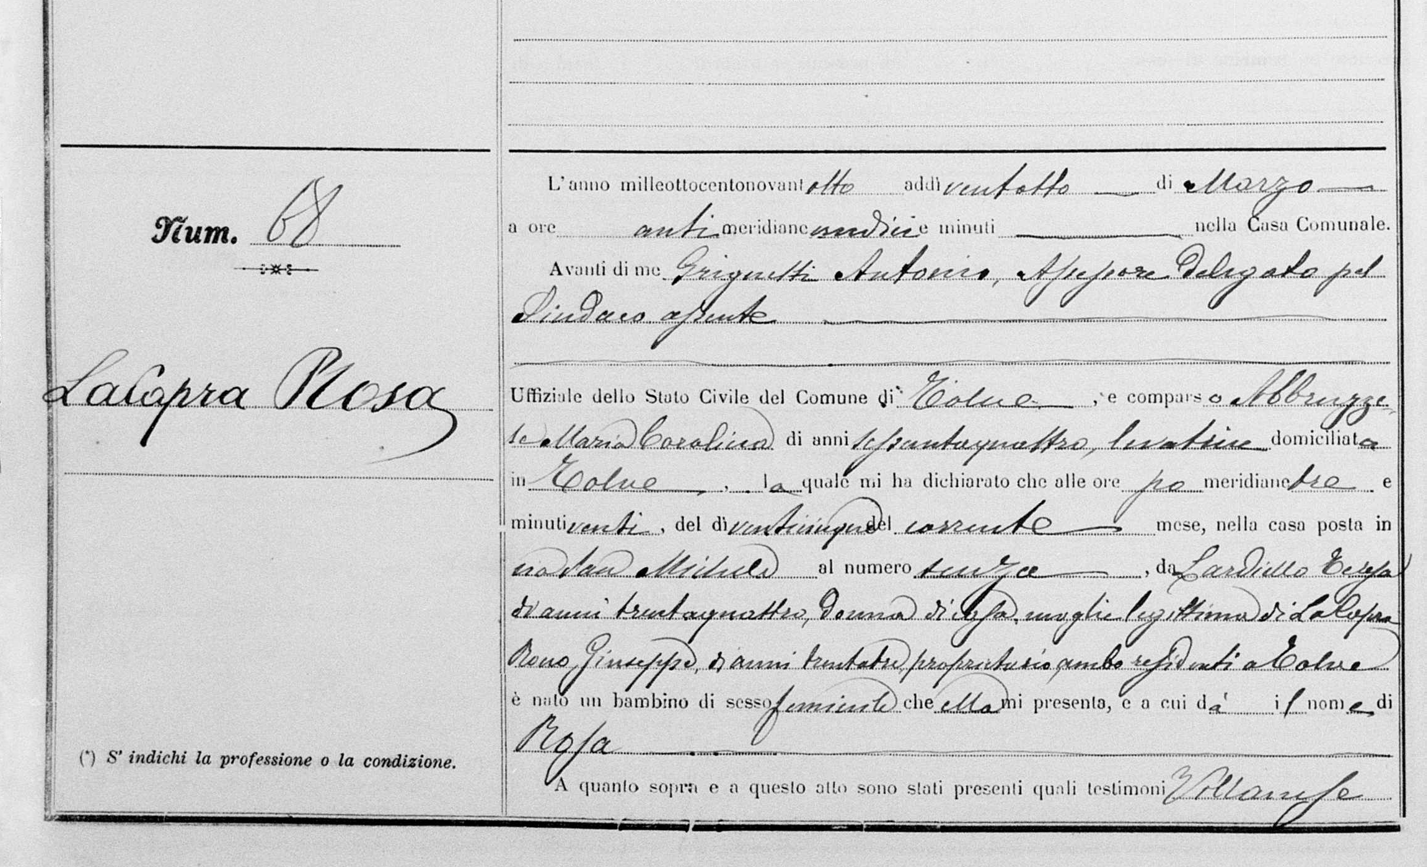 Num. 68
LaCapra Rosa
(*) S' indichi la professione o la condizione.
L'anno milleottocentonovantotto addì ventotto di Marzo
a ore antimeridiane undici e minuti nella Casa Comunale.
Avanti di me Grignetti Antonio, Assessore Delegato pel
Sindaco assente
Uffiziale dello Stato Civile del Comune di Tolve, è comparso Abbruzze
se Maria Carolina di anni sessantaquattro, levatrice domiciliata
in Tolve, la quale mi ha dichiarato che alle ore po meridiane tre e
minuti venti, del dì venticinque del corrente mese, nella casa posta in
via San Michele al numero senza, da Lardiello Teresa
di anni trentaquattro, donna di casa, moglie legittima di LaCapra
Giuseppe, di anni trentatre, proprietario, ambo residenti a Tolve
è nato un bambino di sesso feminile che ella mi presenta, e a cui dà il nome di
Rosa
A quanto sopra e a questo atto sono stati presenti quali testimoni